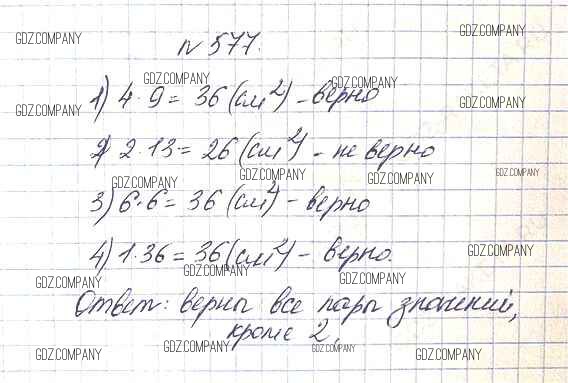 GDZ.COMPANY
GDZ.COMPANY
№ 577.
GDZ.COMPANY
GDZ.COMPANY
1) 4 · 9 = 36 (см²) – верно
GDZ.COMPANY
GDZ.COMPANY
2) 2 · 13 = 26 (см²) – не верно
GDZ.COMPANY
GDZ.COMPANY
GDZ.COMPANY
GDZ.COMPANY
3) 6 · 6 = 36 (см²) – верно
4) 1 · 36 = 36 (см²) – верно.
GDZ.COMPANY
GDZ.COMPANY
GDZ.COMPANY
Ответ: верны все пары значений,
кроме 2.
GDZ.COMPANY
GDZ.COMPANY
GDZ.COMPANY
GDZ.COMPANY